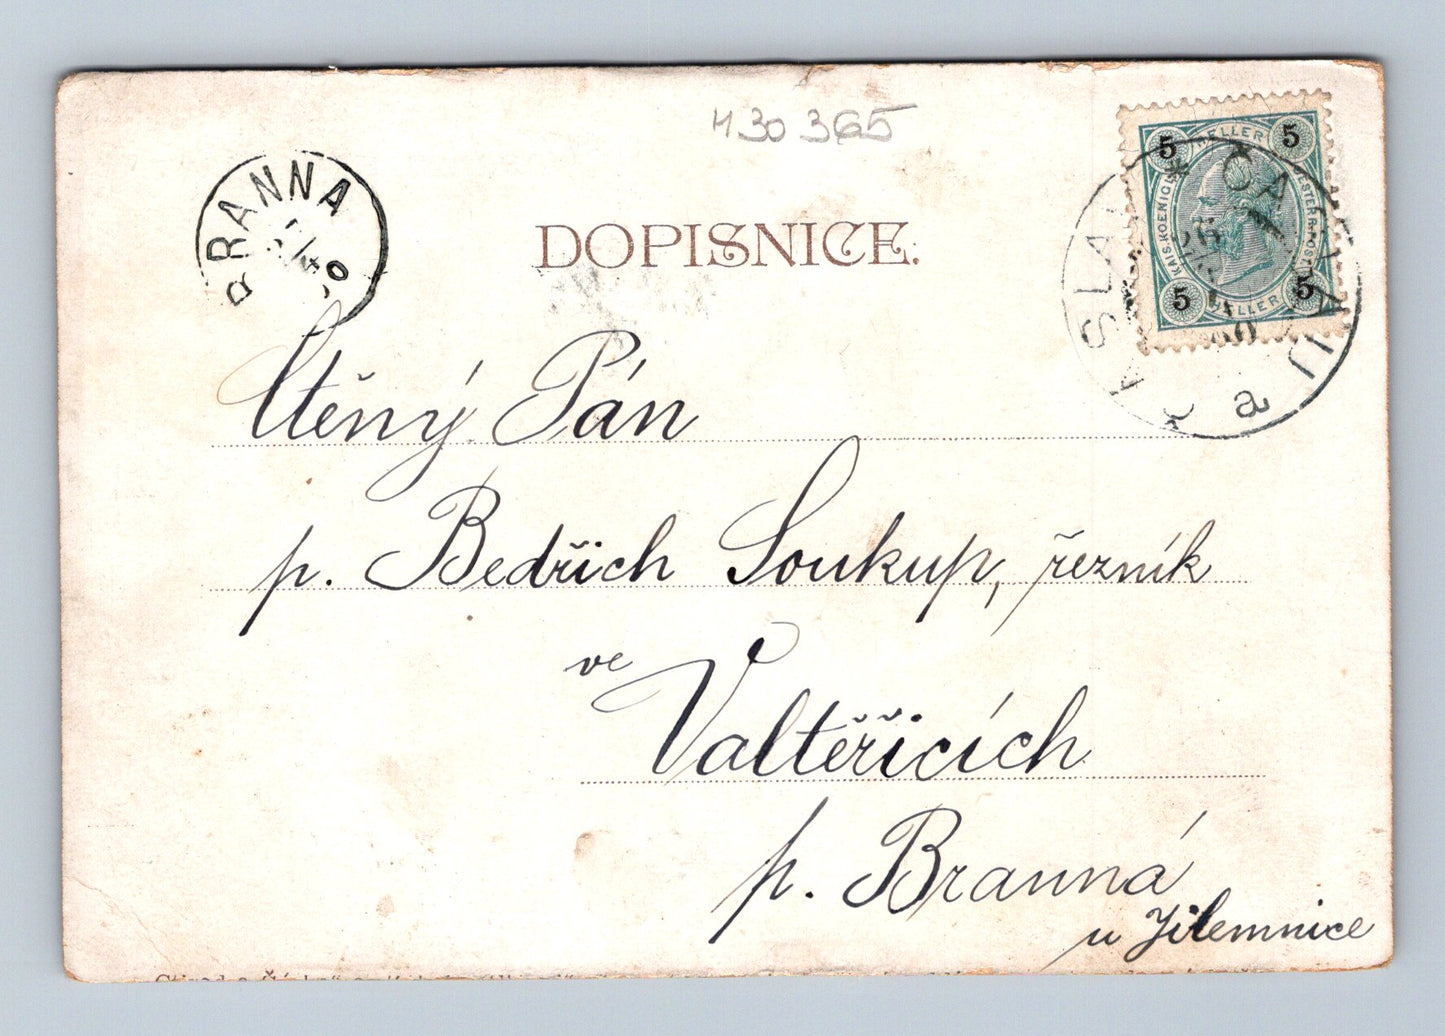 430 365
BRANNA
DOPISNICE.
5 HELLER 5
KAIS.KOENIGL.
5 HELLER 5
ČÁSLAU
ČASLAV
a
Ctěný Pán
p. Bedřich Soukup, řezník
ve
Valtěřicích
p. Branná
u Jilemnice